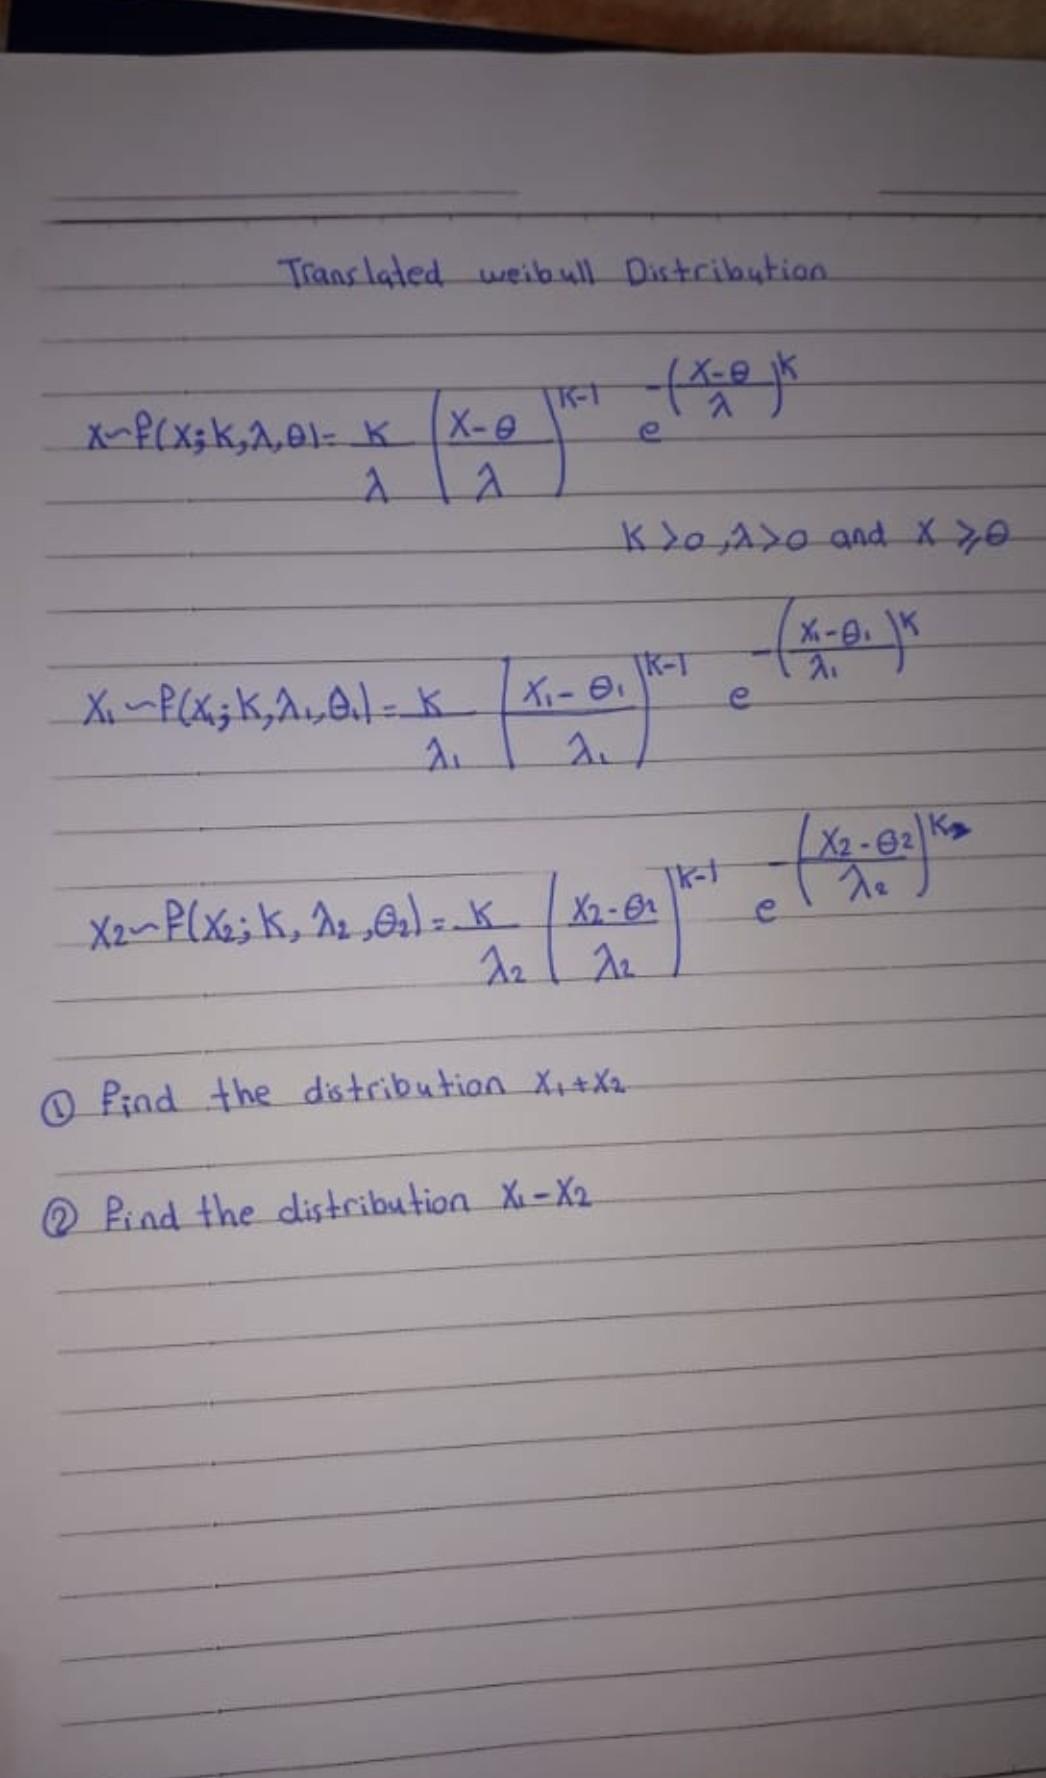 Translated weibull Distribution
X~f(x; K, λ, θ) = K/λ ((X-θ)/λ)^(K-1) e^(-((X-θ)/λ)^K)
K>0, λ>0 and X ≥ θ
X₁~f(X₁; K, λ₁, θ₁) = K/λ₁ ((X₁-θ₁)/λ₁)^(K-1) e^(-((X₁-θ₁)/λ₁)^K)
X2~f(X2; K, λ2, θ2) = K/λ2 ((X2-θ2)/λ2)^(K-1) e^(-((X2-θ2)/λ2)^K)
① find the distribution X₁+X2
② find the distribution X₁-X2